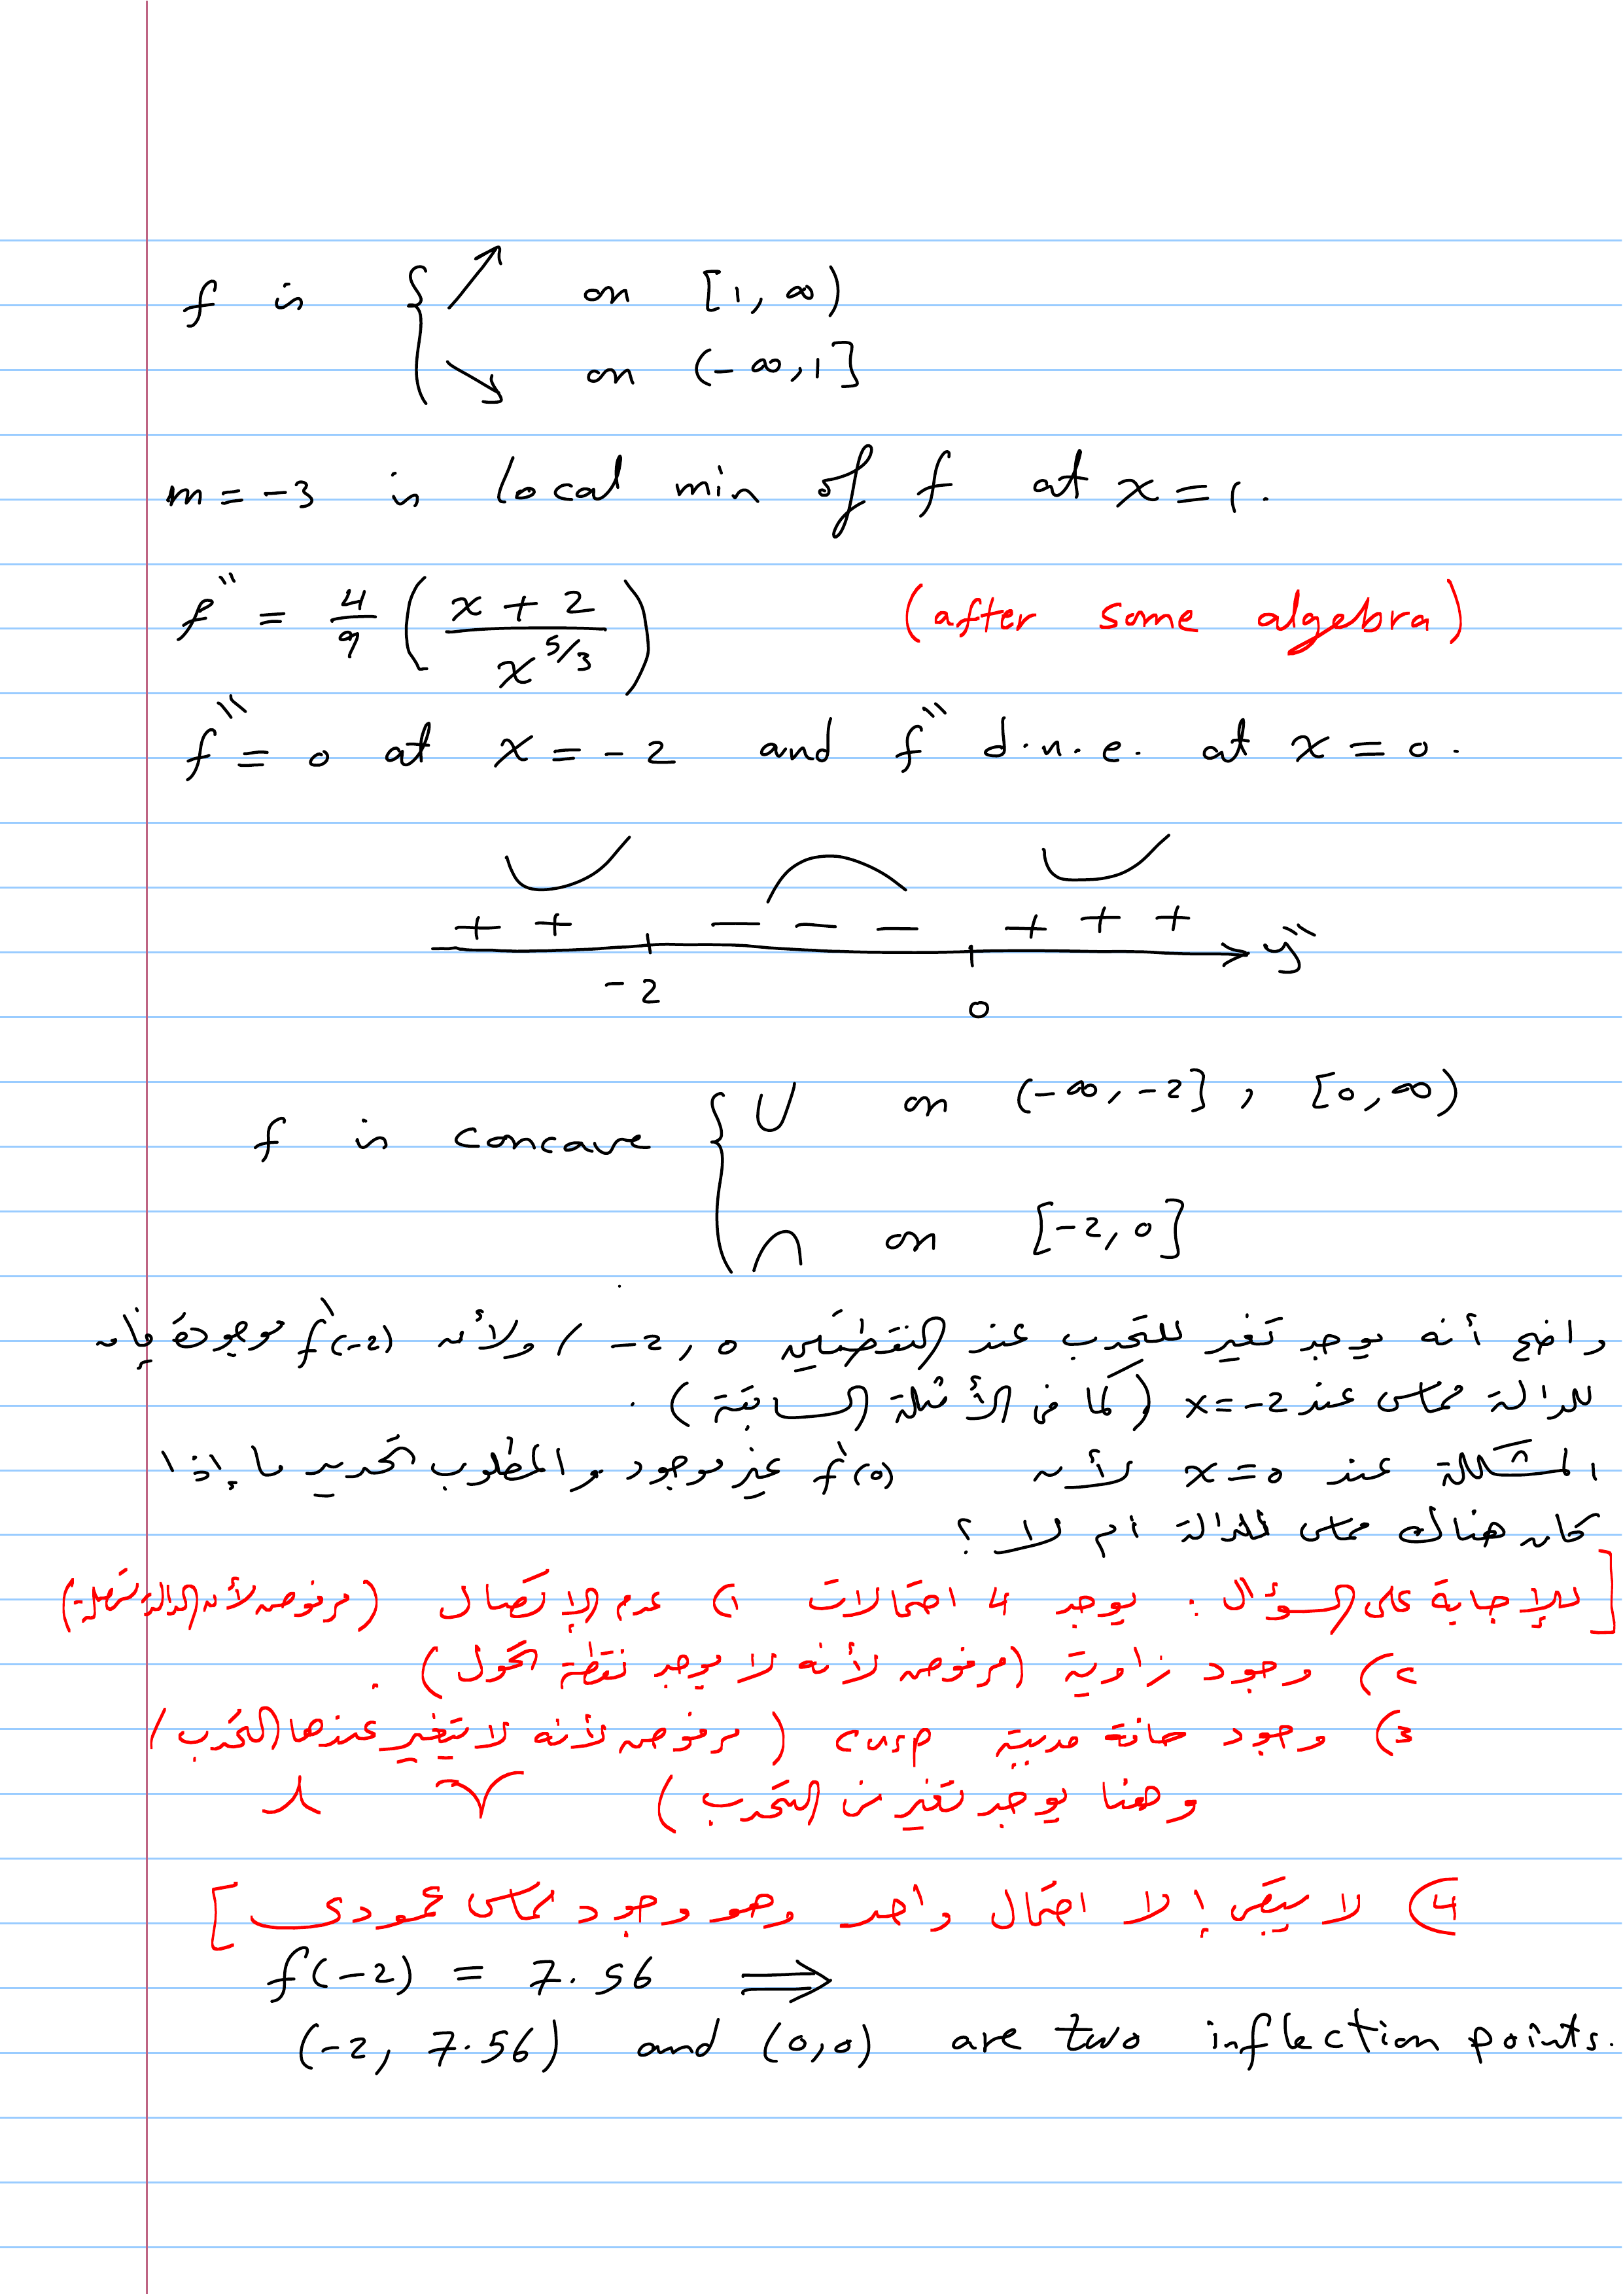 f is { ↗ on [1, ∞)
↘ on (-∞, 1]
m = -3 is local min of f at x = 1.
f'' = 4/9 ( (x + 2) / x^(5/3) ) (after some algebra)
f'' = 0 at x = -2 and f'' d.n.e. at x = 0.
+ + - - - + + + y''
-2 0
f is concave { ∪ on (-∞, -2] , [0, ∞)
∩ on [-2, 0]
واضح أنه يوجد تغير للتحدب عند النقطتين -2, 0 / ولأن f'(-2) موجودة فإن
للدالة مماس عند x = -2 (كما في الأمثلة السابقة).
المشكلة عند x = 0 لأن f'(0) غير موجود والمطلوب تحديد ما إذا
كان هناك مماس للدالة أم لا ؟
[للإجابة على السؤال : يوجد 4 احتمالات 1) عدم الاتصال (مرفوض لأن الدالة متصلة)
2) وجود زاوية (مرفوض لأنه لا يوجد نقطة تحول).
3) وجود حافة مدببة cusp (مرفوض لأنه لا يتغير عندها التحدب /
وهنا يوجد تغير في التحدب)
4) لا يبقى إلا احتمال واحد وهو وجود مماس عمودي]
f(-2) = 7.56 ⟹
(-2, 7.56) and (0,0) are two inflection points.